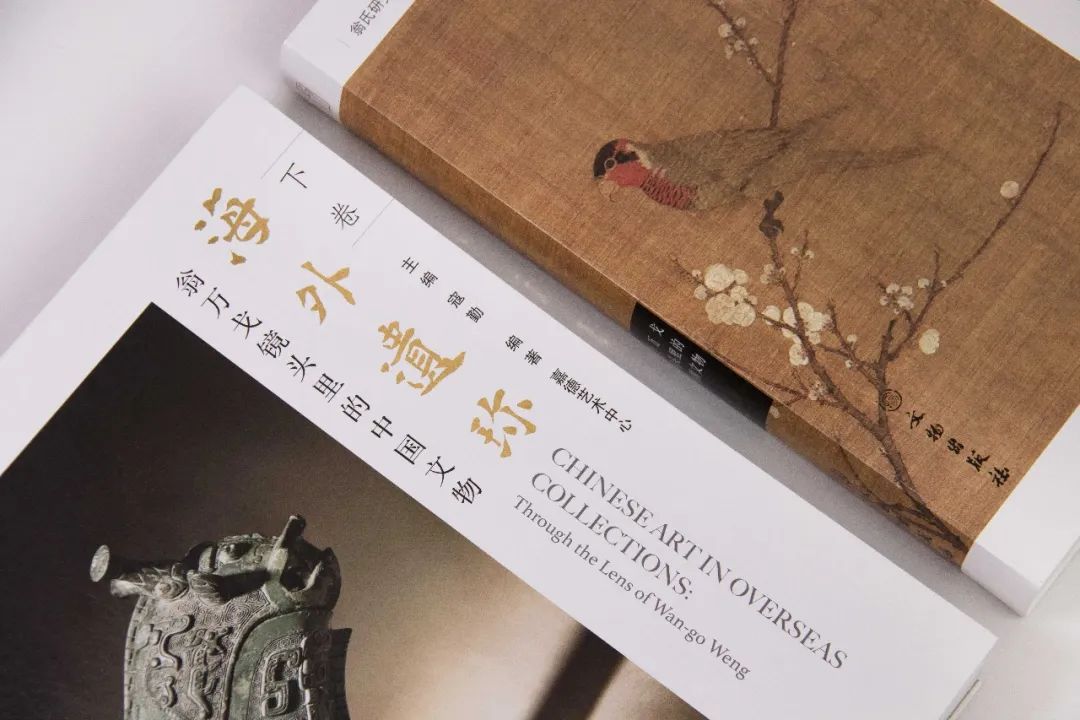 海外遗珍
下卷
翁万戈镜头里的中国文物
主编 寇勤
编著 嘉德艺术中心
CHINESE ART IN OVERSEAS
COLLECTIONS:
Through the Lens of Wan-go Weng
翁氏研
文物出版社